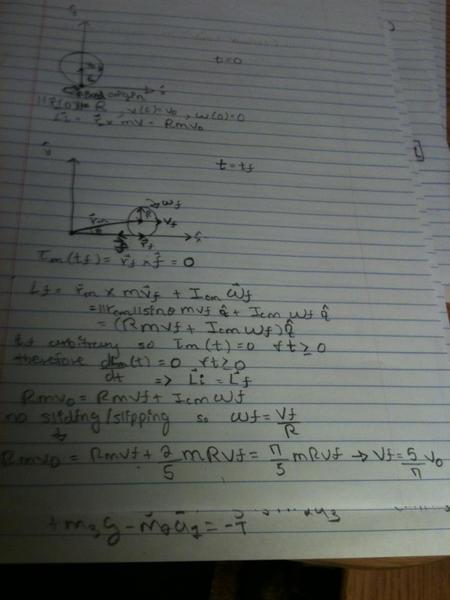 t=0
||r(0)||= R , v(0)=v0 , ω(0)=0
Li = r × mv = Rmv0
t = tf
ωf
R
Vf
rm
θ
f
rf
τm(tf) = rf × f = 0
Lf = rm × mvf + Icm ωf
= ||rm|| sinθ mvf q̂ + Icm ωf q̂
= (Rmvf + Icm ωf) q̂
tf arbitrary so τm(t) = 0 ∀t ≥ 0
therefore dLm/dt (t) = 0 ∀t ≥ 0
=> Li = Lf
Rmv0 = Rmvf + Icm ωf
no sliding/slipping so ωf = Vf/R
Rmv0 = Rmvf + 2/5 mRVf = 7/5 mRVf → Vf = 5/7 v0
+m3g - m2a2 = -T